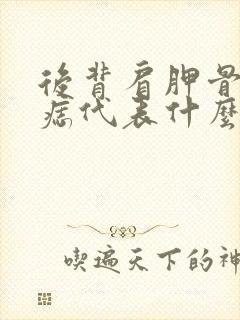 後背肩胛骨
痣代表什麼
喫遍天下的神